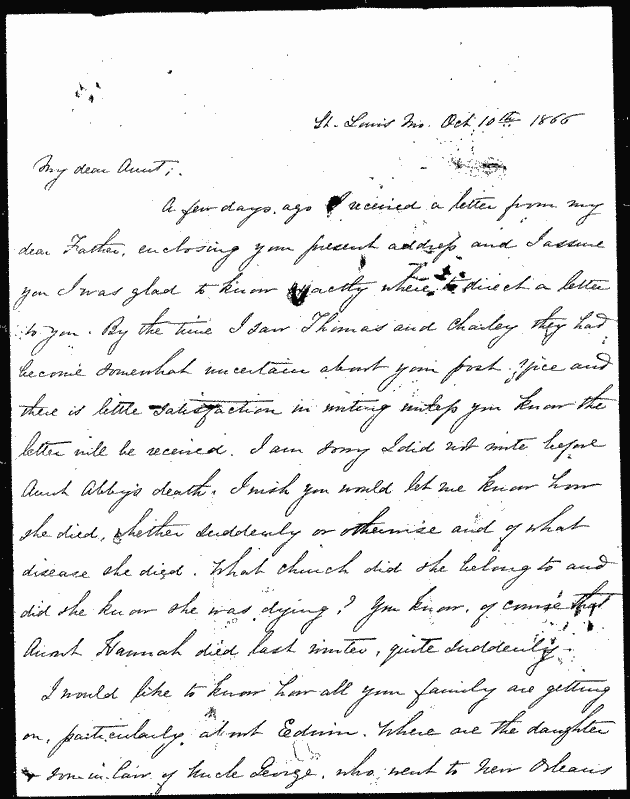 St. Louis Mo. Oct 10th 1866
My dear Aunt;
A few days ago I received a letter from my
dear Father, enclosing your present address and I assure
you I was glad to know exactly where to direct a letter
to you. By the time I saw Thomas and Charley they had
become somewhat uncertain about your post office and
there is little satisfaction in writing unless you know the
letter will be received. I am sorry I did not write before
Aunt Abby's death. I wish you would let me know how
she died, whether suddenly or otherwise and of what
disease she died. What church did she belong to and
did she know she was dying? You know, of course that
Aunt Hannah died last winter, quite suddenly.
I would like to know how all your family are getting
on, particularly about Edwin. Where are the daughter
& son in law of Uncle George, who went to New Orleans